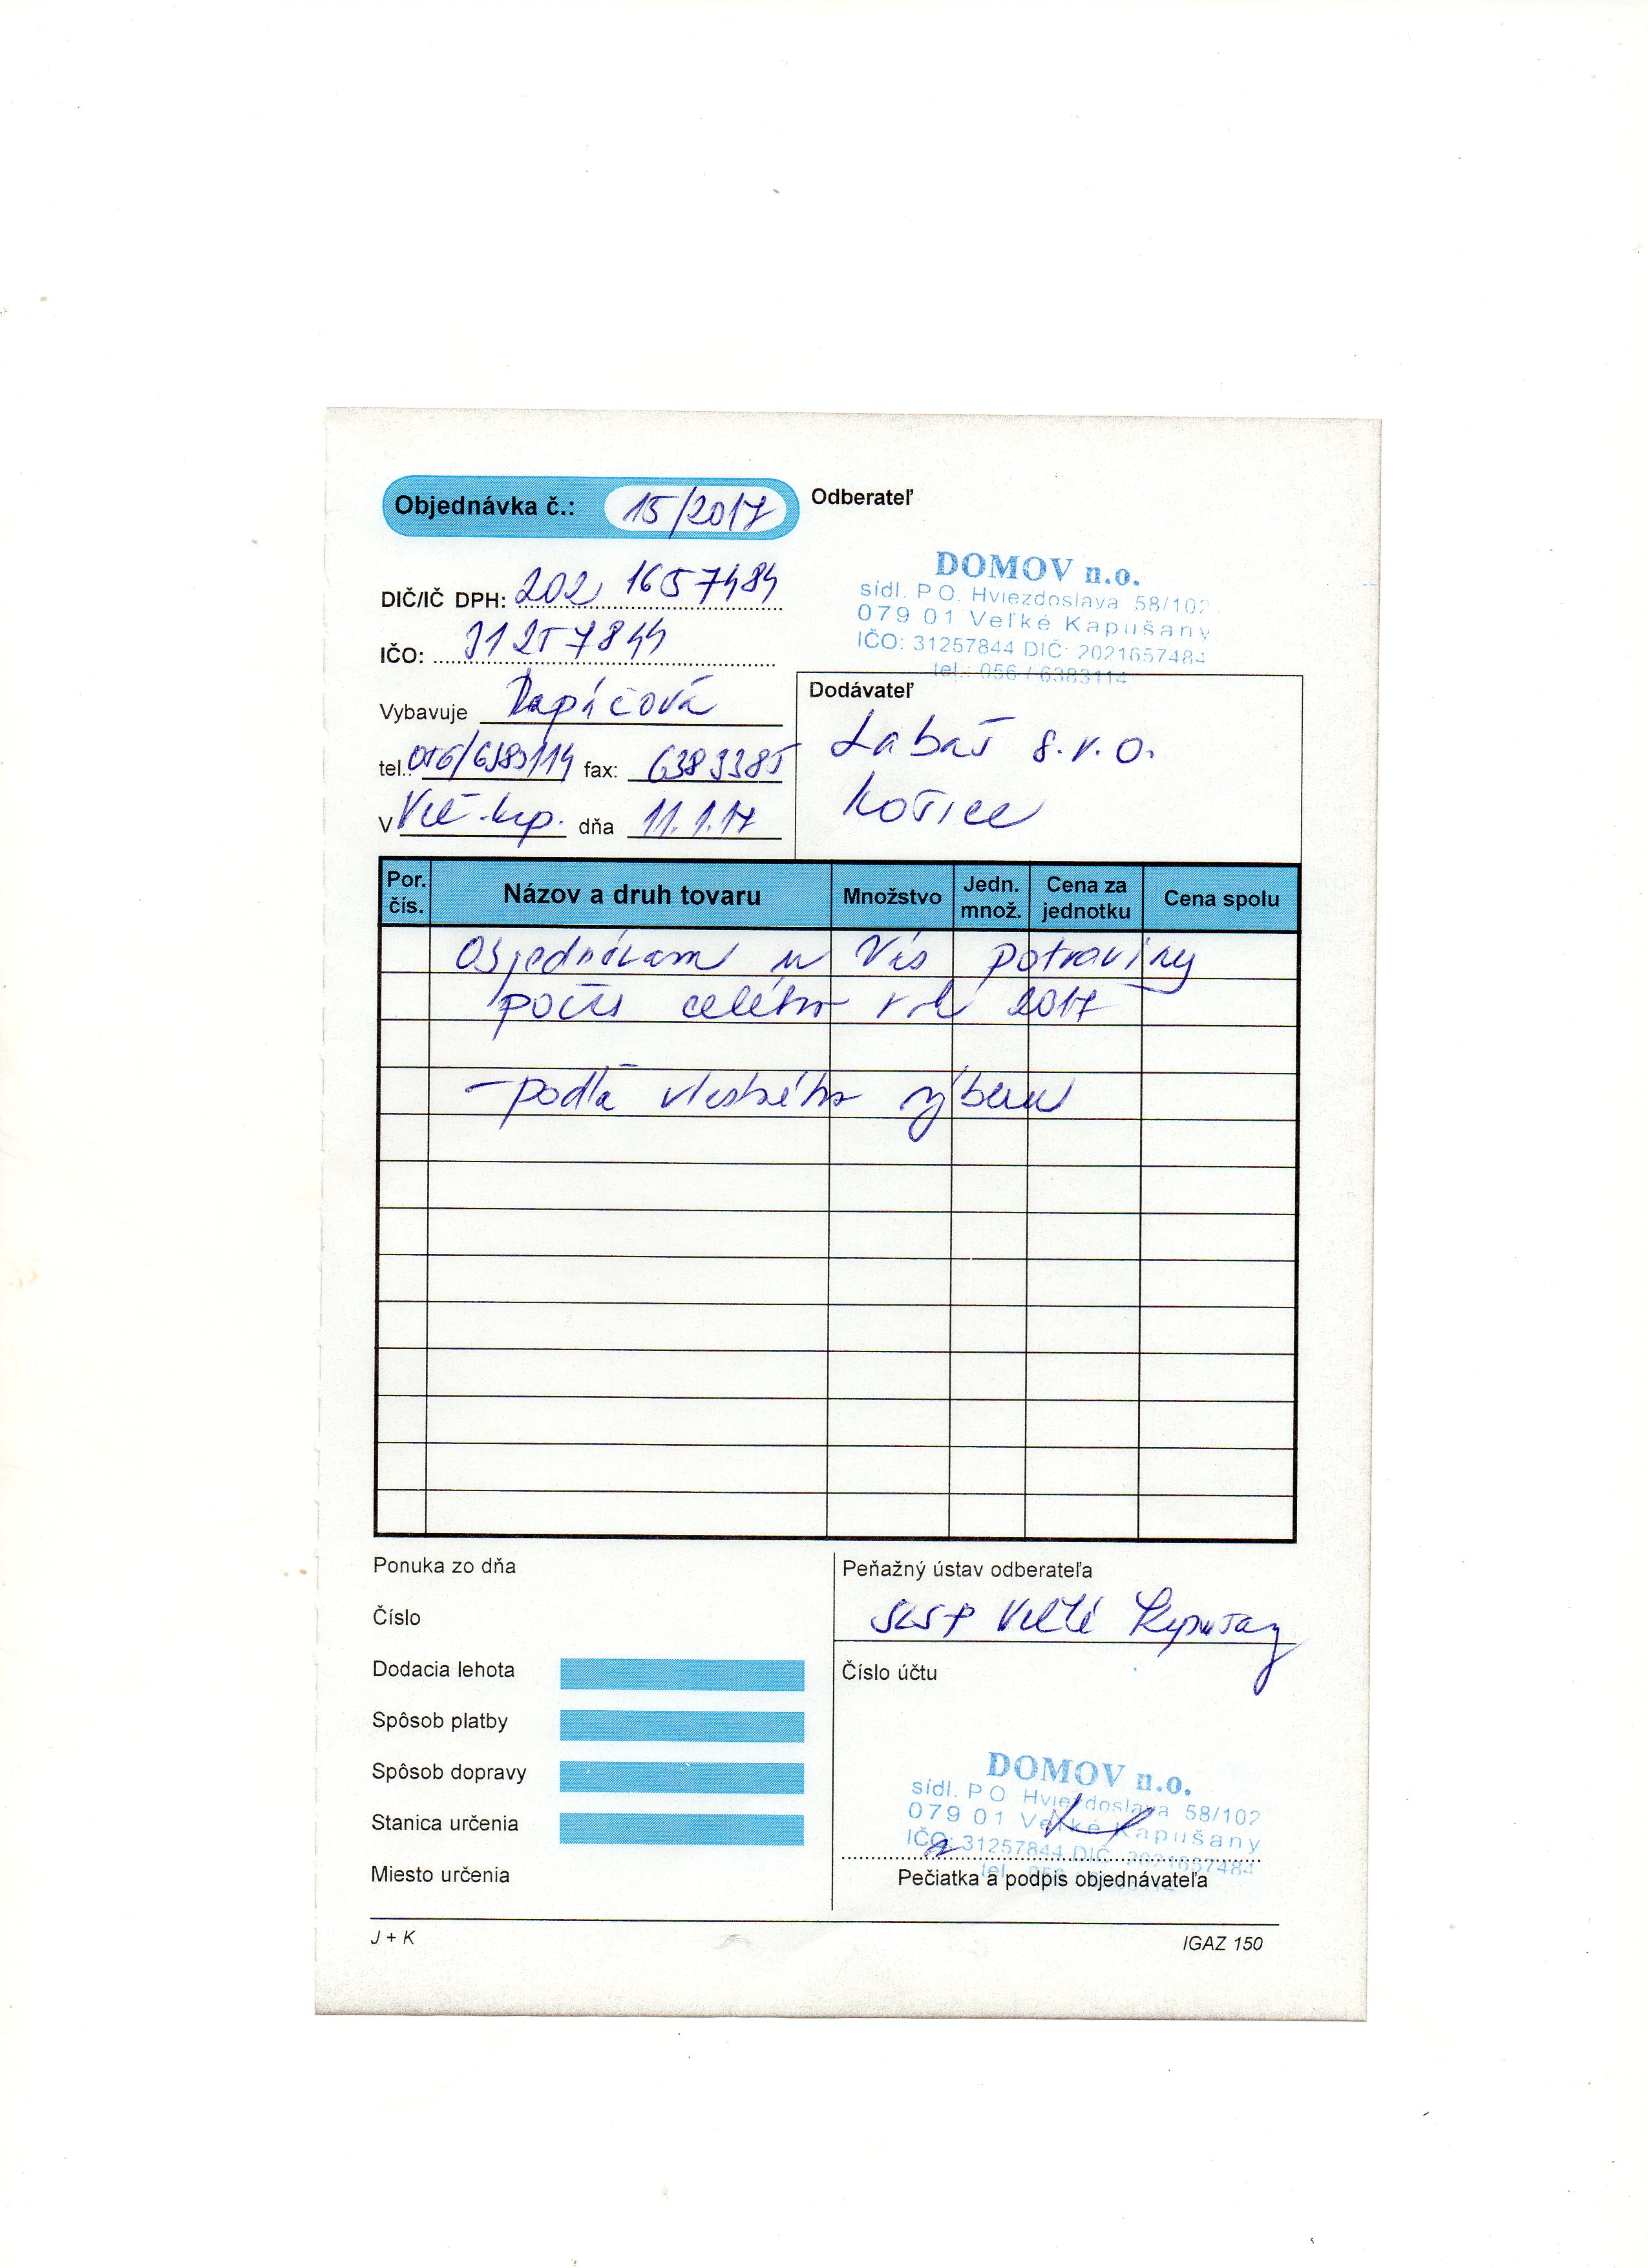 Objednávka č.: 15/2017
Odberateľ
DOMOV n.o.
sídl. P.O. Hviezdoslava 58/102
079 01 Veľké Kapušany
IČO: 31257844 DIČ: 2021657484
tel.: 056 / 6383114
DIČ/IČ DPH: 202 1657484
IČO: 31257844
Vybavuje
tel.: 056/6383114 fax: 6383385
V Veľ. kap. dňa 11.1.17
Dodávateľ
Labaš s.r.o.
Košice
Por. čís. Názov a druh tovaru Množstvo Jedn. množ. Cena za jednotku Cena spolu
Objednávam u Vás potraviny
počas celého roku 2017
- podľa vlastného výberu
Ponuka zo dňa
Číslo
Dodacia lehota
Spôsob platby
Spôsob dopravy
Stanica určenia
Miesto určenia
Peňažný ústav odberateľa
SLSP Veľké Kapušany
Číslo účtu
DOMOV n.o.
sídl. P.O. Hviezdoslava 58/102
079 01 Veľké Kapušany
IČO: 31257844 DIČ: 2021657484
Pečiatka a podpis objednávateľa
J + K
IGAZ 150